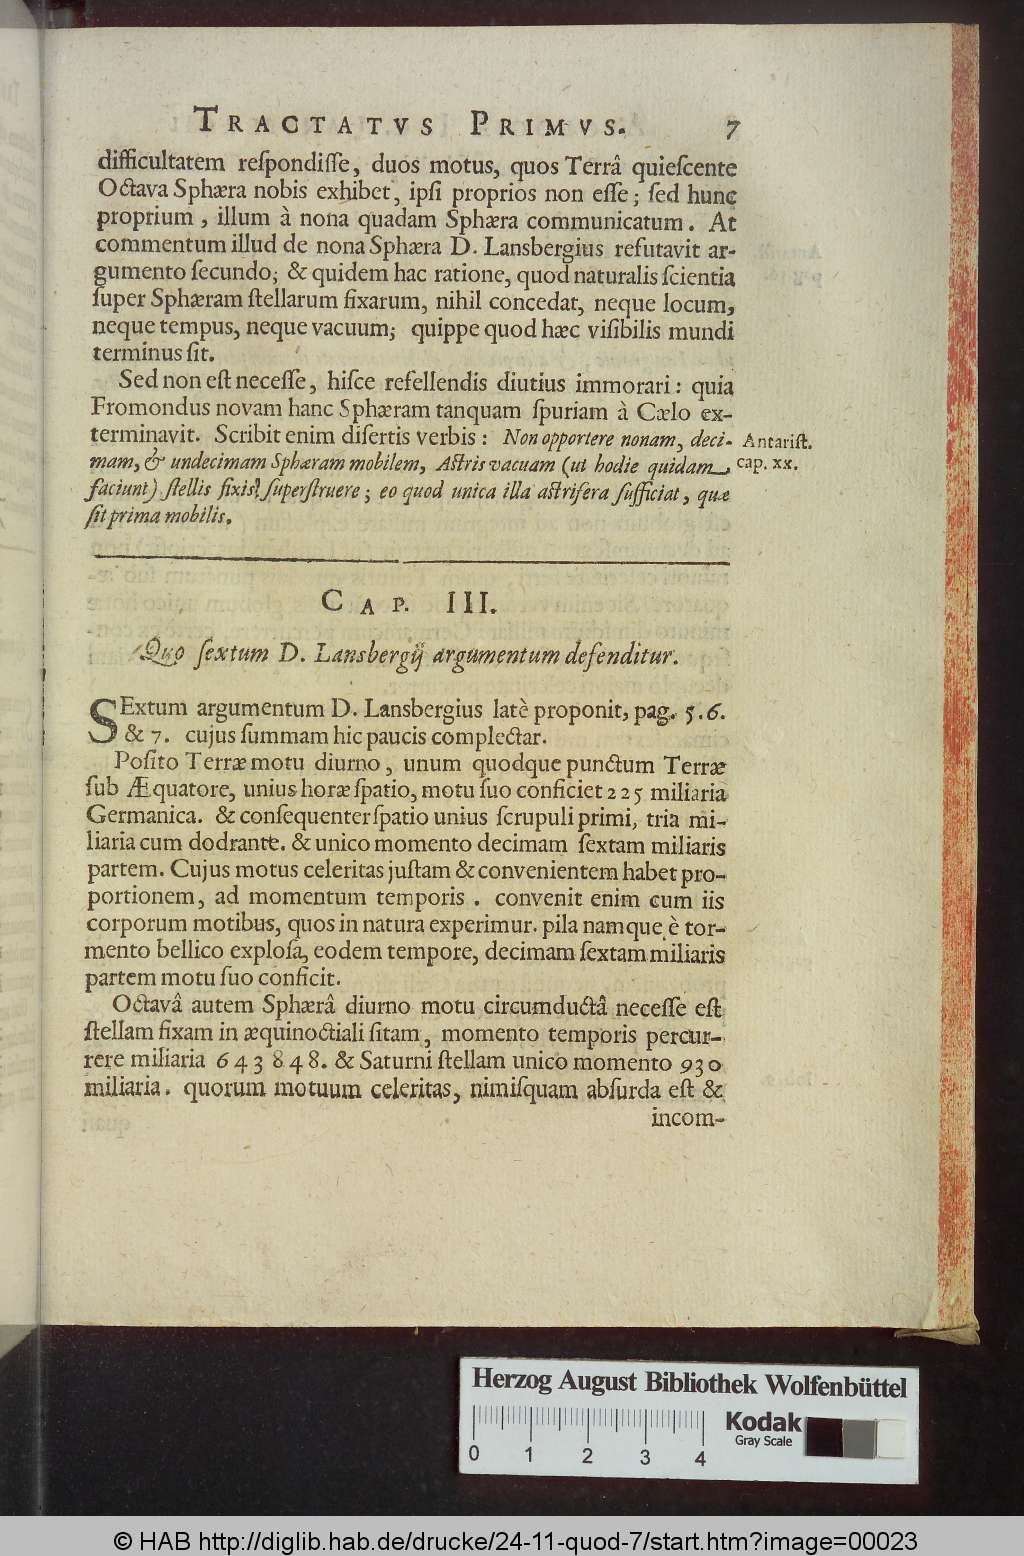 TRACTATVS PRIMVS. 7
difficultatem reſpondiſſe, duos motus, quos Terrâ quieſcente
Octava Sphæra nobis exhibet, ipſi proprios non eſſe; ſed hunc
proprium, illum à nona quadam Sphæra communicatum. At
commentum illud de nona Sphæra D. Lansbergius refutavit ar-
gumento ſecundo; & quidem hac ratione, quod naturalis ſcientia
ſuper Sphæram ſtellarum fixarum, nihil concedat, neque locum,
neque tempus, neque vacuum; quippe quod hæc viſibilis mundi
terminus ſit.
Sed non eſt neceſſe, hiſce refellendis diutius immorari: quia
Fromondus novam hanc Sphæram tanquam ſpuriam à Cælo ex-
terminavit. Scribit enim diſertis verbis: Non opportere nonam, deci-
mam, & undecimam Sphæram mobilem, Aſtris vacuam (ut hodie quidam
faciunt) ſtellis fixis ſuperſtruere; eo quod unica illa aſtrifera ſufficiat, quæ
ſit prima mobilis.
Antariſt.
cap. xx.
CAP. III.
Quo ſextum D. Lansbergij argumentum defenditur.
SExtum argumentum D. Lansbergius latè proponit, pag. 5. 6.
& 7. cujus ſummam hic paucis complectar.
Poſito Terræ motu diurno, unum quodque punctum Terræ
ſub Æquatore, unius horæ ſpatio, motu ſuo conficiet 225 miliaria
Germanica. & conſequenter ſpatio unius ſcrupuli primi, tria mi-
liaria cum dodrante. & unico momento decimam ſextam miliaris
partem. Cujus motus celeritas juſtam & convenientem habet pro-
portionem, ad momentum temporis. convenit enim cum iis
corporum motibus, quos in natura experimur. pila namque è tor-
mento bellico exploſa, eodem tempore, decimam ſextam miliaris
partem motu ſuo conficit.
Octavâ autem Sphærâ diurno motu circumductâ neceſſe eſt
ſtellam fixam in æquinoctiali ſitam, momento temporis percur-
rere miliaria 643848. & Saturni ſtellam unico momento 930
miliaria. quorum motuum celeritas, nimiſquam abſurda eſt &
incom-
Herzog August Bibliothek Wolfenbüttel
Kodak
Gray Scale
0 1 2 3 4
© HAB http://diglib.hab.de/drucke/24-11-quod-7/start.htm?image=00023